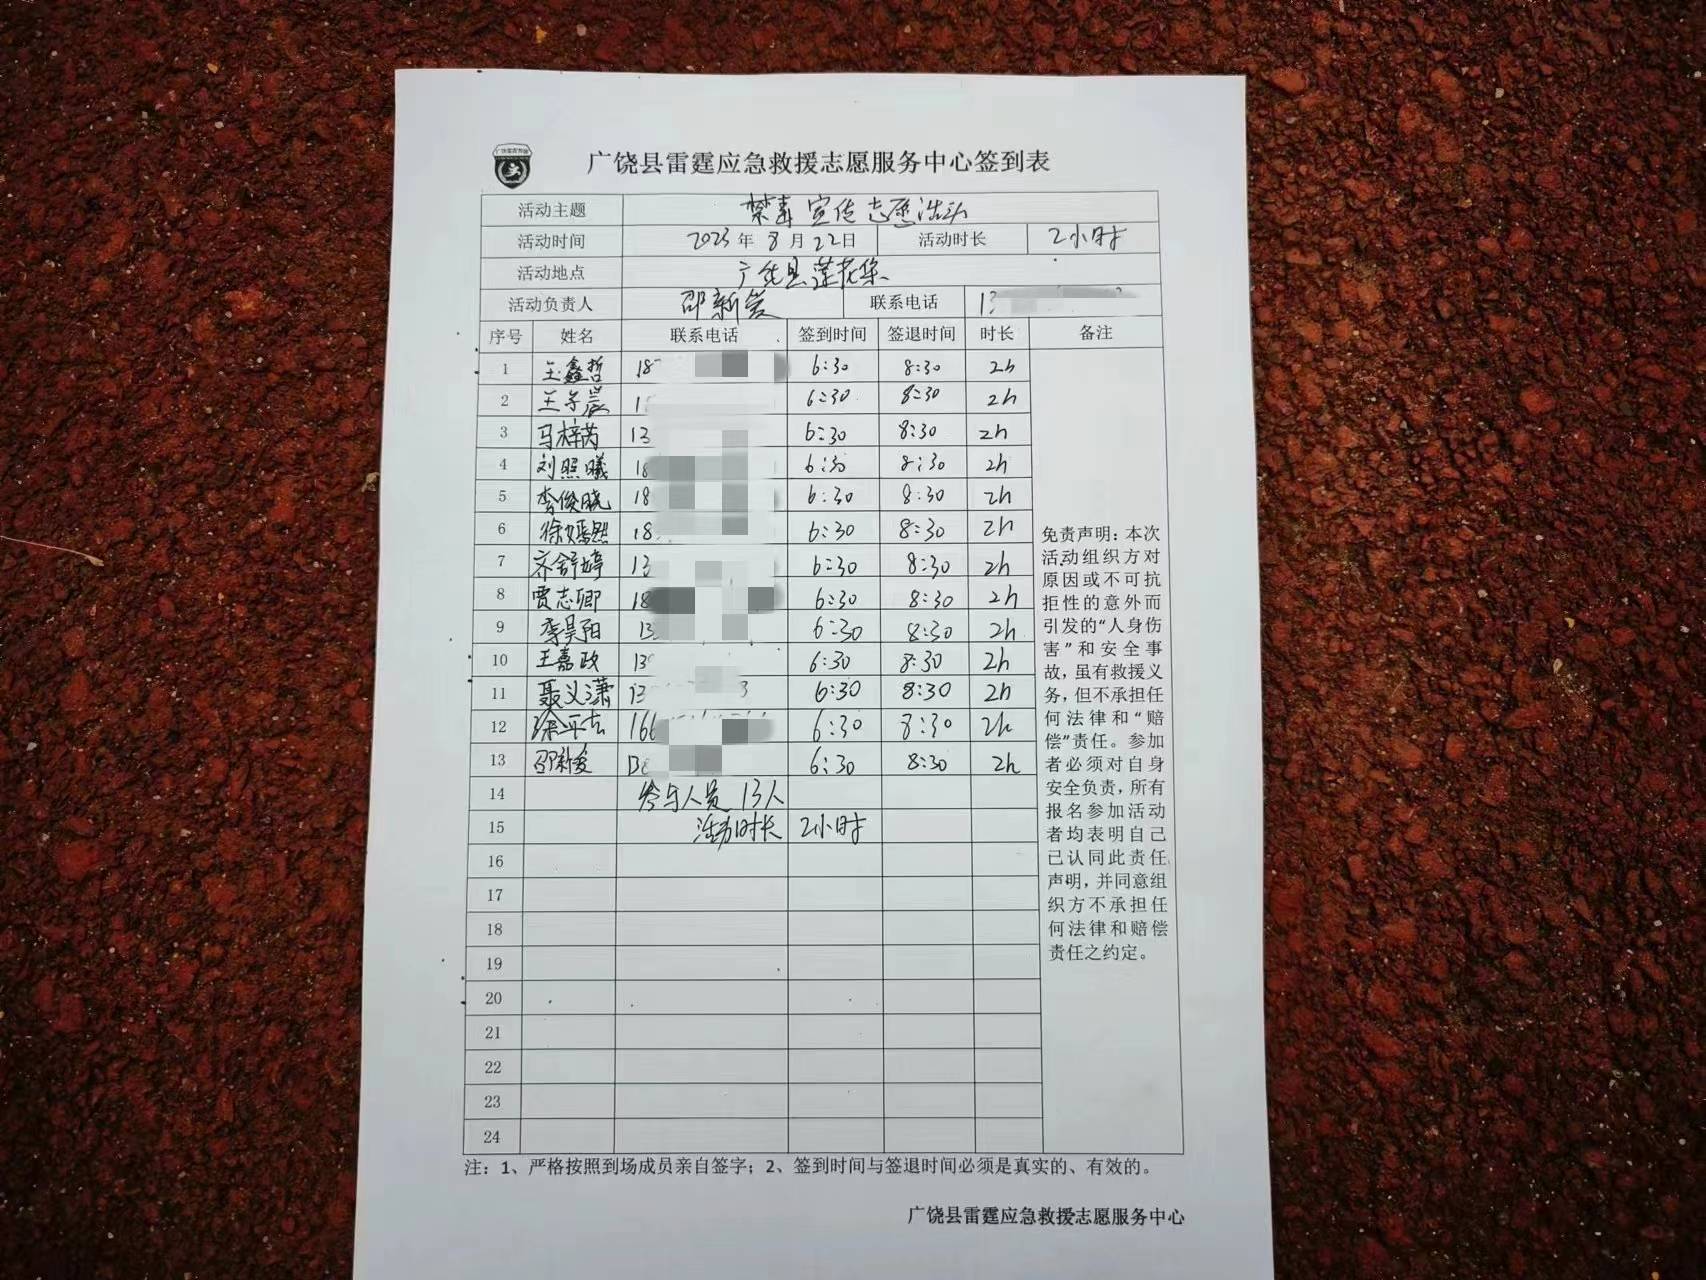 广饶县雷霆应急救援志愿服务中心签到表
活动主题 禁毒宣传志愿活动
活动时间 2023年8月22日 活动时长 2小时
活动地点 广饶县莲花集
活动负责人 邵新爱 联系电话 13
序号 姓名 联系电话 签到时间 签退时间 时长 备注
1 王鑫哲 18 6:30 8:30 2h
2 王子晨 1 6:30 8:30 2h
3 马梓芮 13 6:30 8:30 2h
4 刘照曦 18 6:30 8:30 2h
5 李俊晓 18 6:30 8:30 2h
6 徐嫣然 18 6:30 8:30 2h
7 齐舒婷 13 6:30 8:30 2h
8 贾志卿 18 6:30 8:30 2h
9 李昊阳 13 6:30 8:30 2h
10 王嘉政 13 6:30 8:30 2h
11 聂义潇 13 3 6:30 8:30 2h
12 徐平吉 166 6:30 8:30 2h
13 邵新爱 13 6:30 8:30 2h
14 参与人员 13人
15 活动时长 2小时
16
17
18
19
20
21
22
23
24
免责声明：本次
活动组织方对
原因或不可抗
拒性的意外而
引发的“人身伤
害”和安全事
故，虽有救援义
务，但不承担任
何法律和“赔
偿”责任。参加
者必须对自身
安全负责，所有
报名参加活动
者均表明自己
已认同此责任
声明，并同意组
织方不承担任
何法律和赔偿
责任之约定。
注：1、严格按照到场成员亲自签字；2、签到时间与签退时间必须是真实的、有效的。
广饶县雷霆应急救援志愿服务中心